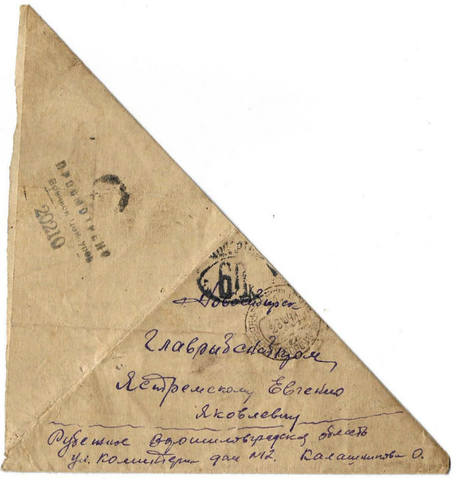 Просмотрено
Военной Цензурой
20210
60 к
Новосибирск
Главрибснабпром
Ястремскому Евгению
Яковлевичу
Рубежное Ворошиловградская область
ул. Коминтерна дом №2. Калашникова О.